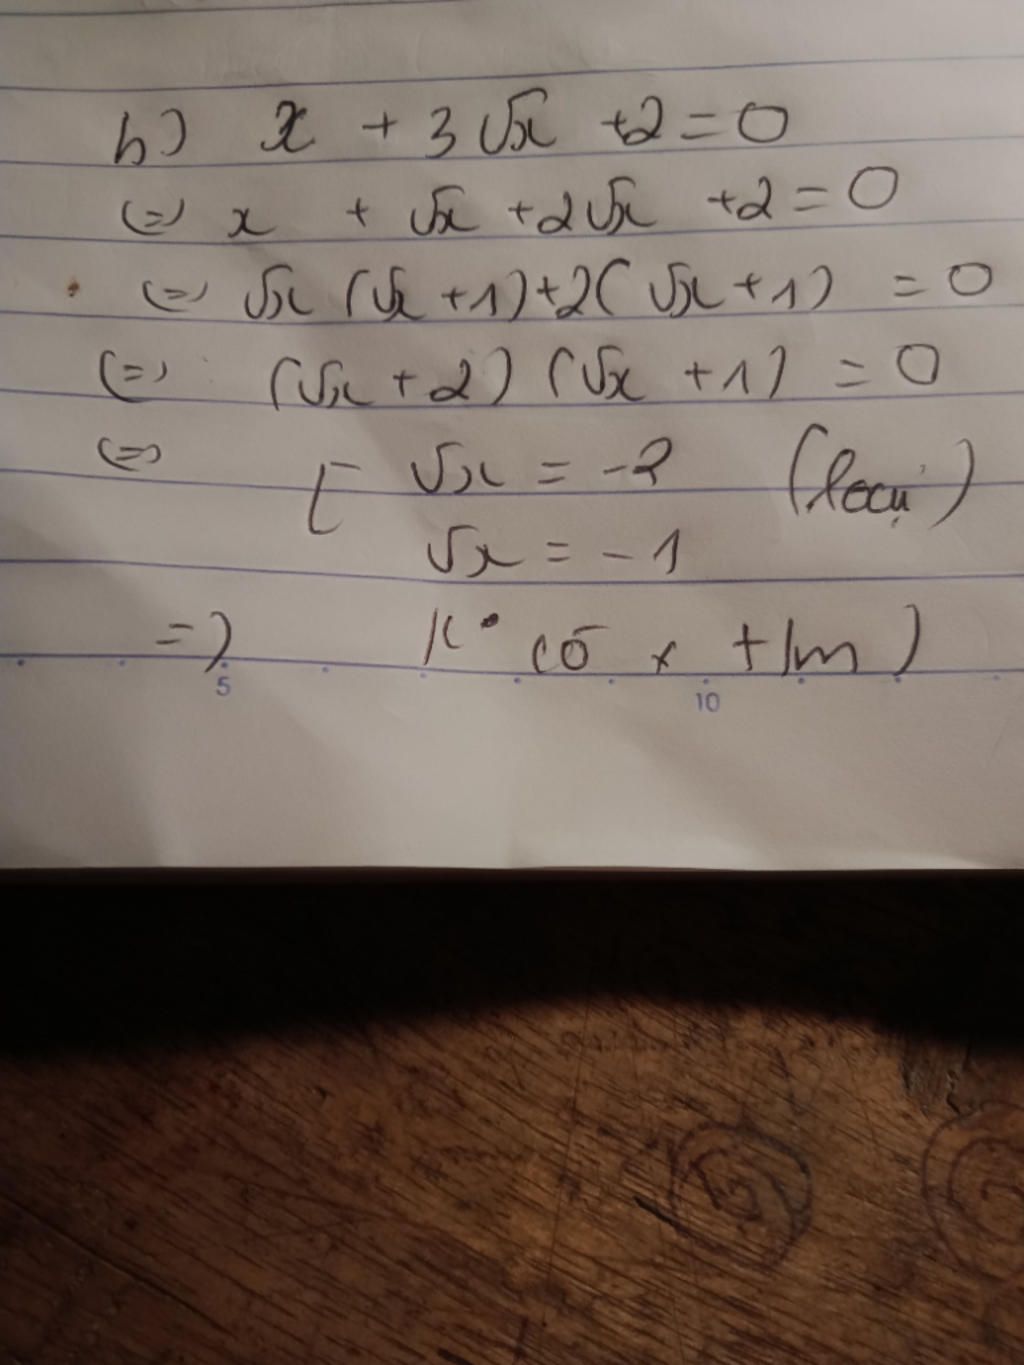 b) x + 3√x + 2 = 0
(=) x + √x + 2√x + 2 = 0
(=) √x (√x + 1) + 2(√x + 1) = 0
(=) (√x + 2) (√x + 1) = 0
(=) [ √x = -2 (loại)
√x = -1
=) K° có x t/m)
5 10